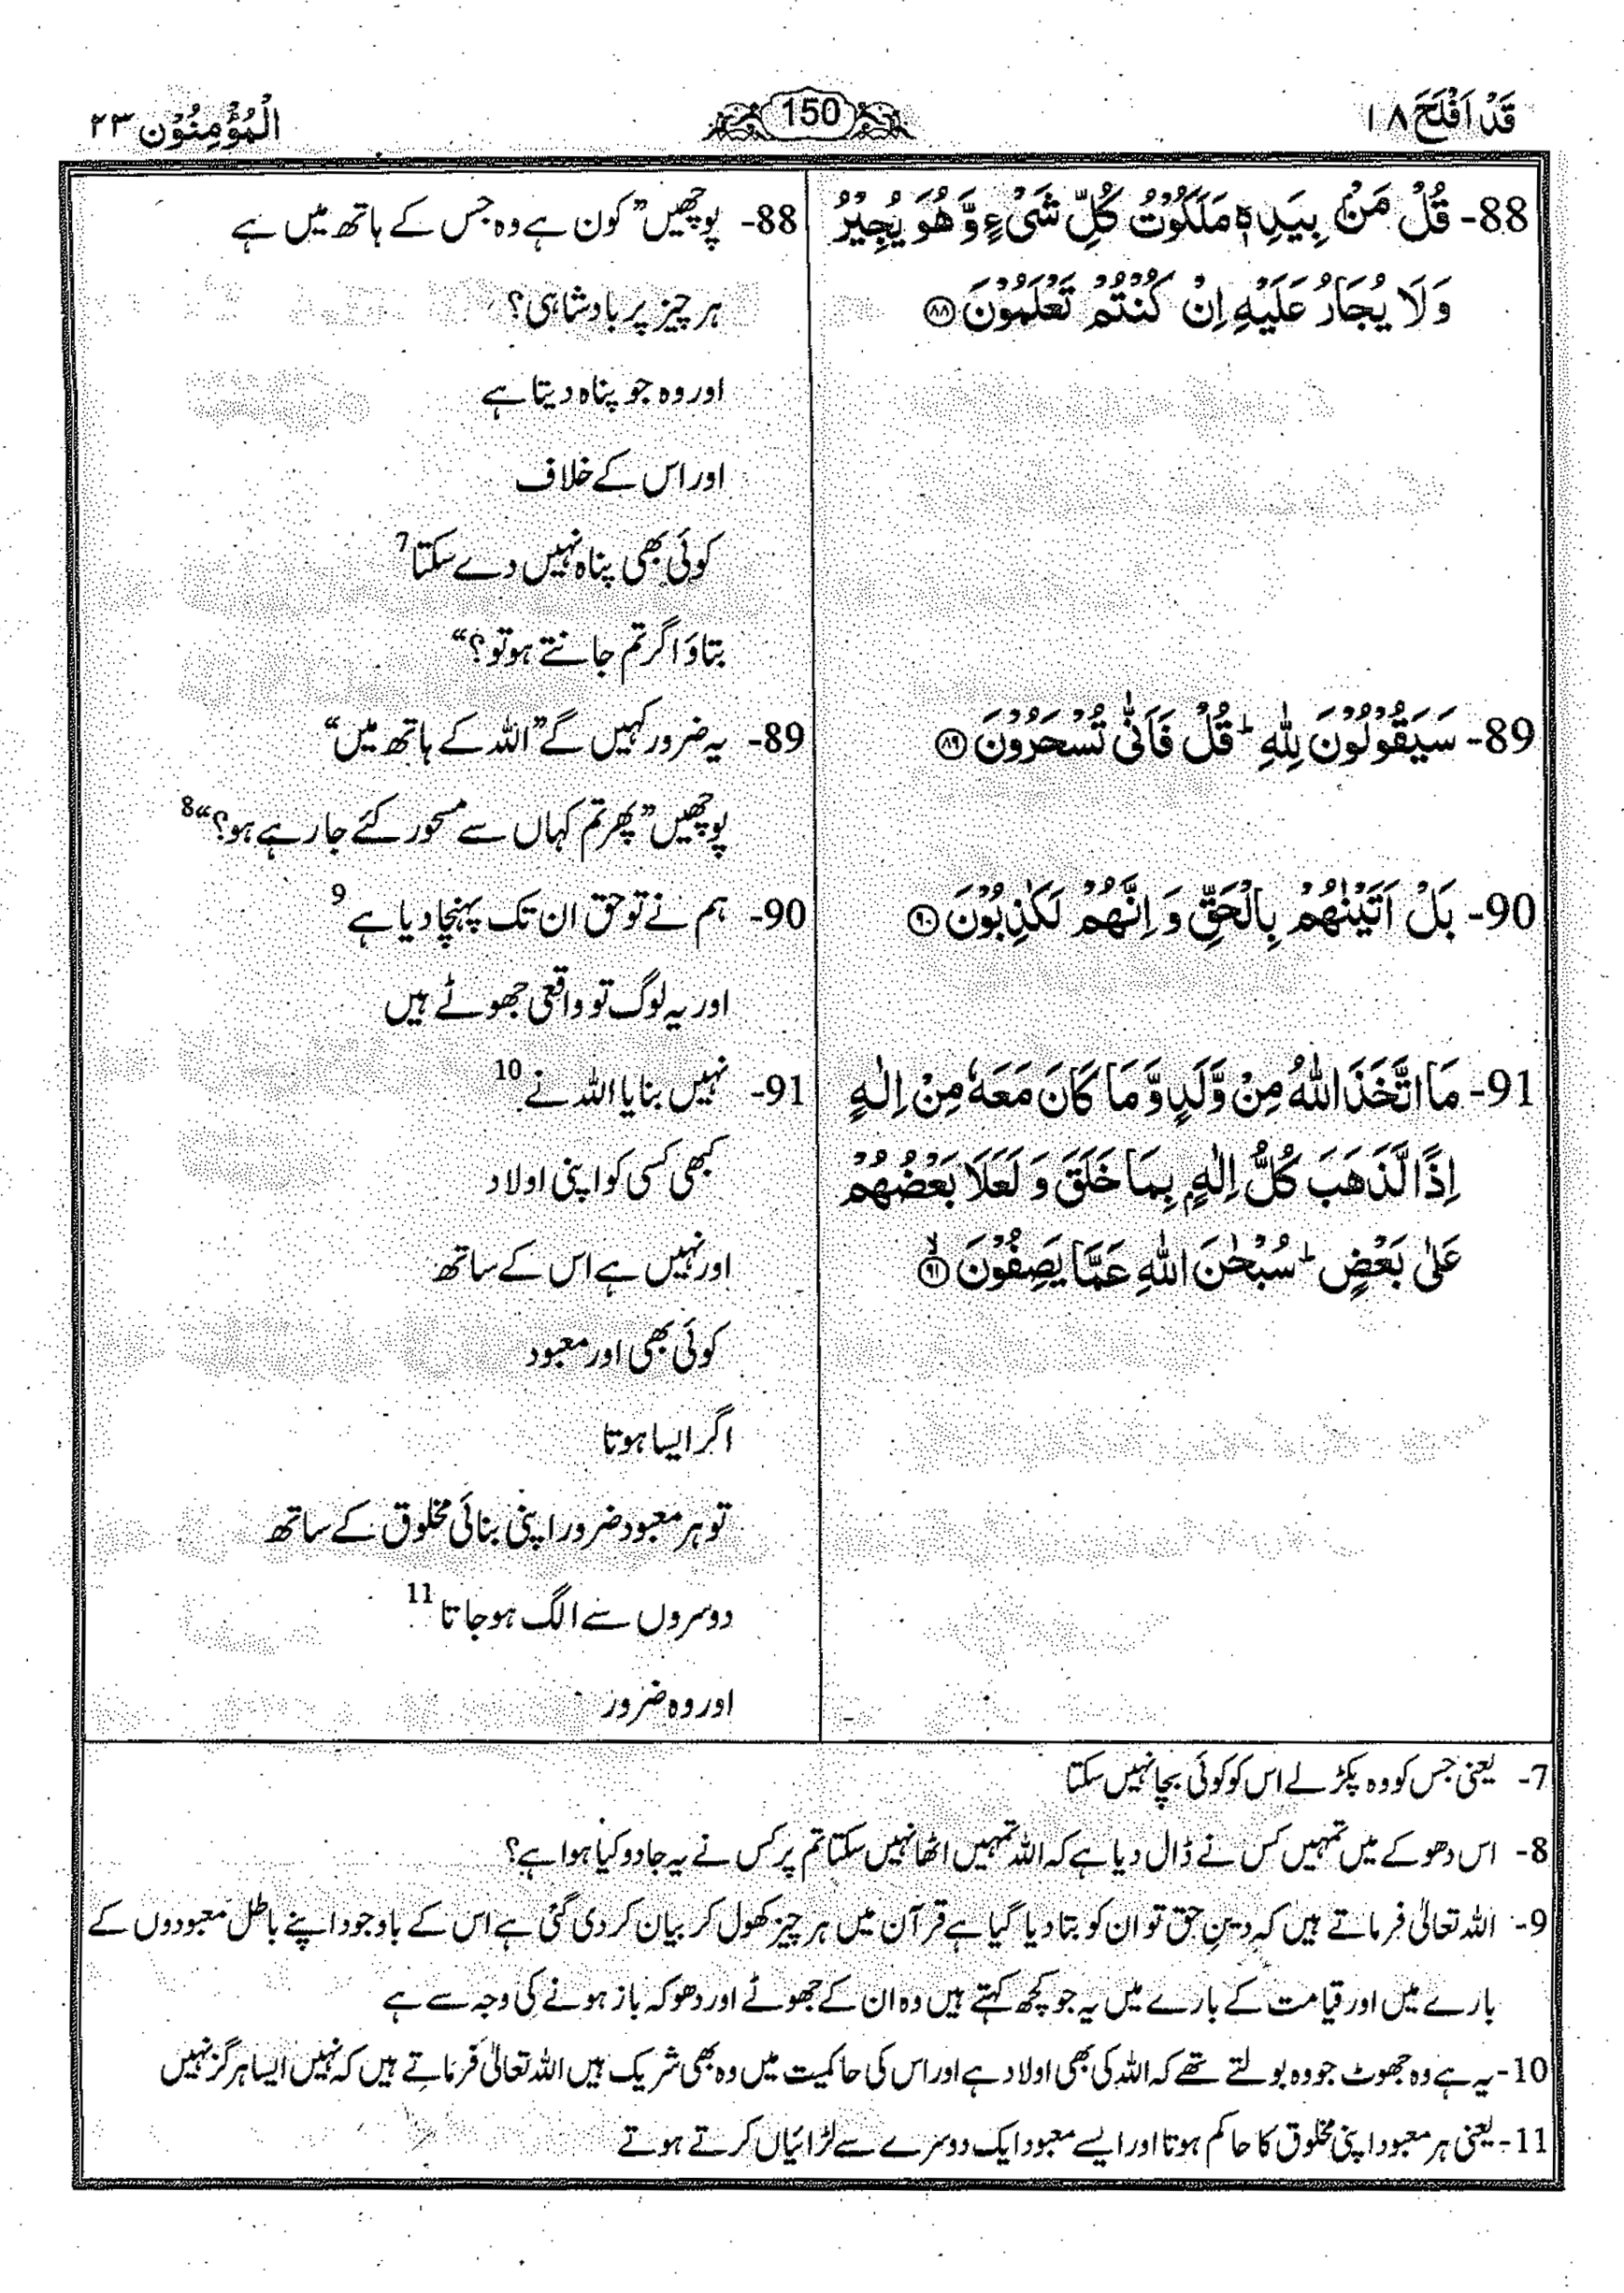 قَدْ اَفْلَحَ ۱۸
150
الْمُؤْمِنُوْن ۲۳
88- قُلْ مَنْۢ بِيَدِهٖ مَلَكُوْتُ كُلِّ شَیْءٍ وَّ هُوَ يُجِيْرُ
وَلَا يُجَارُ عَلَيْهِ اِنْ كُنْتُمْ تَعْلَمُوْنَ ﴿۸۸﴾
89- سَيَقُوْلُوْنَ لِلّٰهِ ؕ قُلْ فَاَنّٰى تُسْحَرُوْنَ ﴿۸۹﴾
90- بَلْ اَتَيْنٰهُمْ بِالْحَقِّ وَ اِنَّهُمْ لَكٰذِبُوْنَ ﴿۹۰﴾
91- مَا اتَّخَذَ اللّٰهُ مِنْ وَّلَدٍ وَّ مَا كَانَ مَعَهٗ مِنْ اِلٰهٍ
اِذًا لَّذَهَبَ كُلُّ اِلٰهٍۭ بِمَا خَلَقَ وَ لَعَلَا بَعْضُهُمْ
عَلٰى بَعْضٍ ؕ سُبْحٰنَ اللّٰهِ عَمَّا يَصِفُوْنَ ﴿۹۱﴾
88- پوچھیں ”کون ہے وہ جس کے ہاتھ میں ہے
ہر چیز پر بادشاہی؟
اور وہ جو پناہ دیتا ہے
اور اس کے خلاف
کوئی بھی پناہ نہیں دے سکتا 7
بتاؤ اگر تم جانتے ہو تو؟“
89- یہ ضرور کہیں گے ”اللہ کے ہاتھ میں“
پوچھیں ”پھر تم کہاں سے مسحور کئے جا رہے ہو؟“ 8
90- ہم نے تو حق ان تک پہنچا دیا ہے 9
اور یہ لوگ تو واقعی جھوٹے ہیں
91- نہیں بنایا اللہ نے 10
کبھی کسی کو اپنی اولاد
اور نہیں ہے اس کے ساتھ
کوئی بھی اور معبود
اگر ایسا ہوتا
تو ہر معبود ضرور اپنی بنائی مخلوق کے ساتھ
دوسروں سے الگ ہو جاتا 11
اور وہ ضرور
7- یعنی جس کو وہ پکڑ لے اس کو کوئی بچا نہیں سکتا
8- اس دھوکے میں تمہیں کس نے ڈال دیا ہے کہ اللہ تمہیں اٹھا نہیں سکتا تم پر کس نے یہ جادو کیا ہوا ہے؟
9- اللہ تعالیٰ فرماتے ہیں کہ دینِ حق تو ان کو بتا دیا گیا ہے قرآن میں ہر چیز کھول کر بیان کر دی گئی ہے اس کے باوجود اپنے باطل معبودوں کے
بارے میں اور قیامت کے بارے میں یہ جو کچھ کہتے ہیں وہ ان کے جھوٹے اور دھوکہ باز ہونے کی وجہ سے ہے
10- یہ ہے وہ جھوٹ جو وہ بولتے تھے کہ اللہ کی بھی اولاد ہے اور اس کی حاکمیت میں وہ بھی شریک ہیں اللہ تعالیٰ فرماتے ہیں کہ نہیں ایسا ہرگز نہیں
11- یعنی ہر معبود اپنی مخلوق کا حاکم ہوتا اور ایسے معبود ایک دوسرے سے لڑائیاں کرتے ہوتے